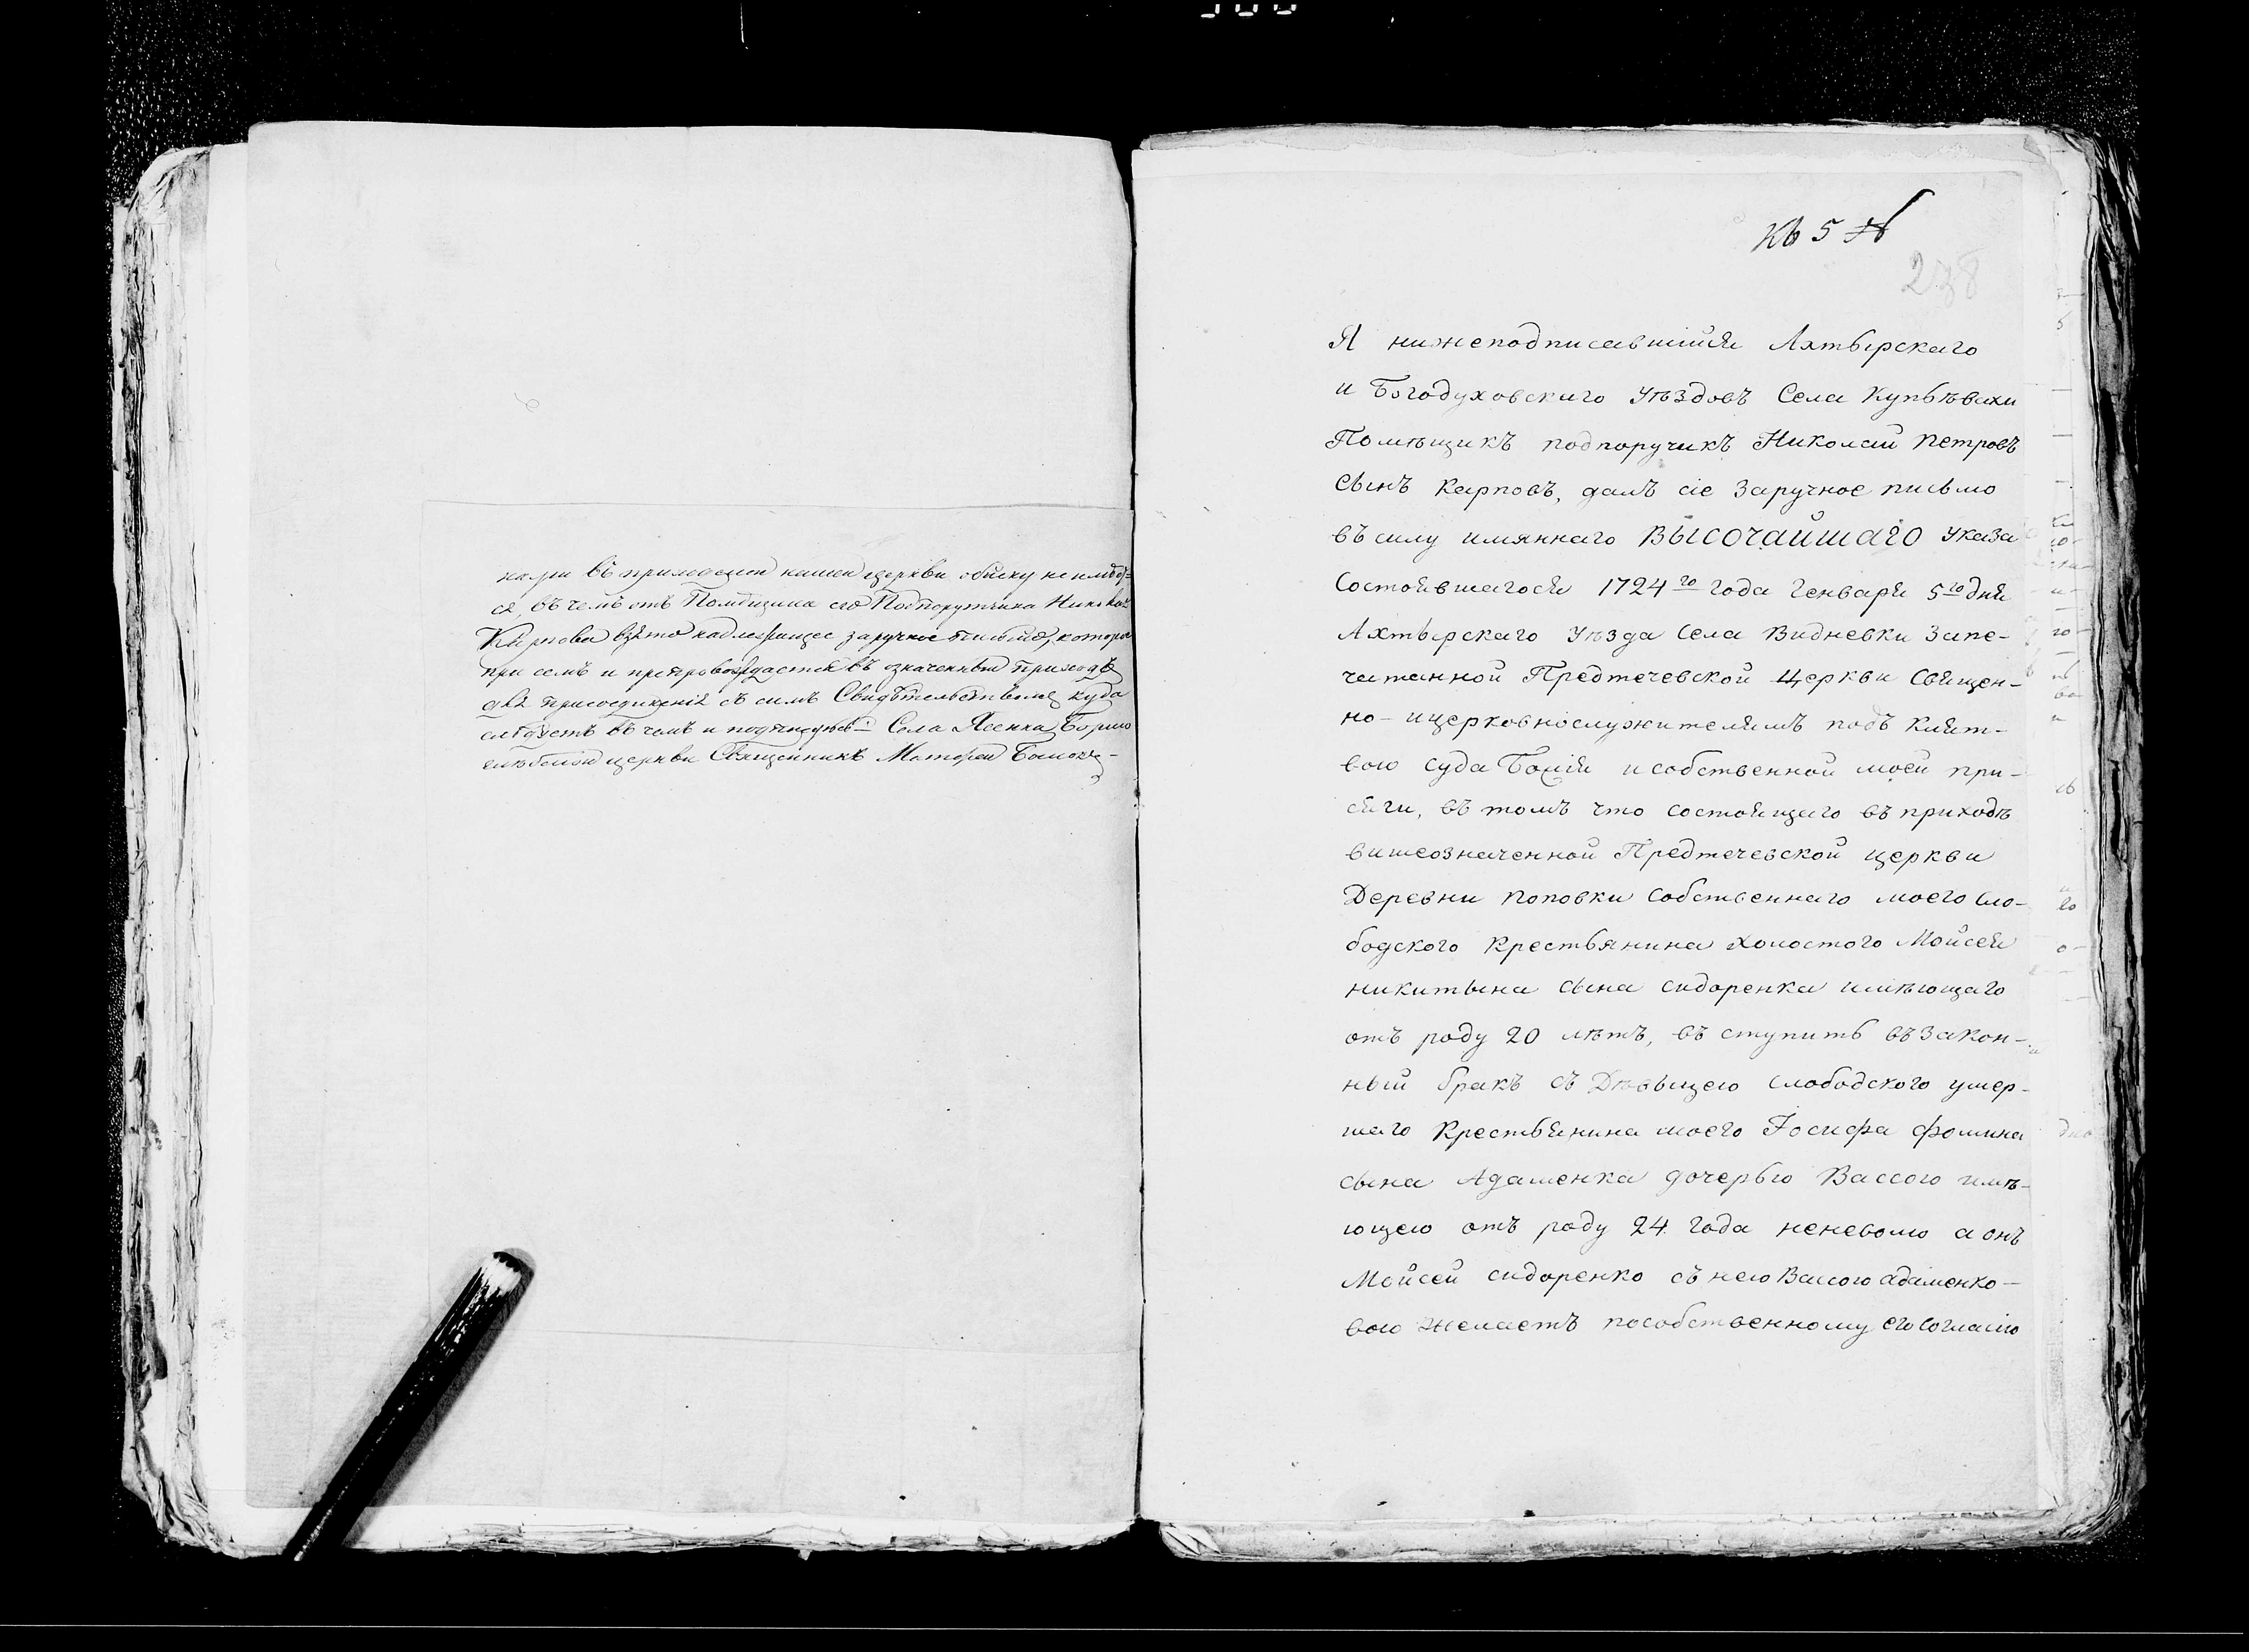 нами въ приходской нашей церкви обыску неимѣет
ся, въ чемъ отъ Помѣщика его Подпорутчика Николая
Карпова взято надлежащее заручное письмо, которое
при семъ и препровождается въ означенный приходъ
для присоединенія съ симъ Свидѣтельствомъ куда
слѣдуетъ въ чемъ и подписуюсь Села Ясенка
церкви Священникъ Матфей
Къ 5 №
238
Я нижеподписавшійся Ахтырскаго
и Богодуховскаго уѣздовъ Села Купьѣвахи
Помѣщикъ подпоручикъ Николай Петровъ
сынъ Карповъ, далъ сіе заручное письмо
въ силу имяннаго ВЫСОЧАЙШАГО указа
Состоявшагося 1724го года Генваря 5го дня
Ахтырскаго уѣзда Села Видневки Запе-
чатанной Предтечевской Церкви Священ-
но- ицерковнослужителямъ подъ Клят-
вою суда Божія и собственной моей при-
сяги, въ томъ что состоящаго въ приходѣ
вишеозначенной Предтечевской церкви
Деревни Поповки собственнаго моего сло-
бодского Крестьянина холостого Мойсея
никитына сына сидоренка имѣющаго
отъ роду 20 лѣтъ, въ ступить въ Закон-
ный бракъ съ Дѣвыцею слободского умер-
шаго Крестьянина моего Іосифа фомина
сына Адаменка дочерью Вассою имѣ-
ющею отъ роду 24 года неневолю а онъ
Мойсей сидоренко съ нею Вассою адаменко-
вою желаетъ пособственному его согласію